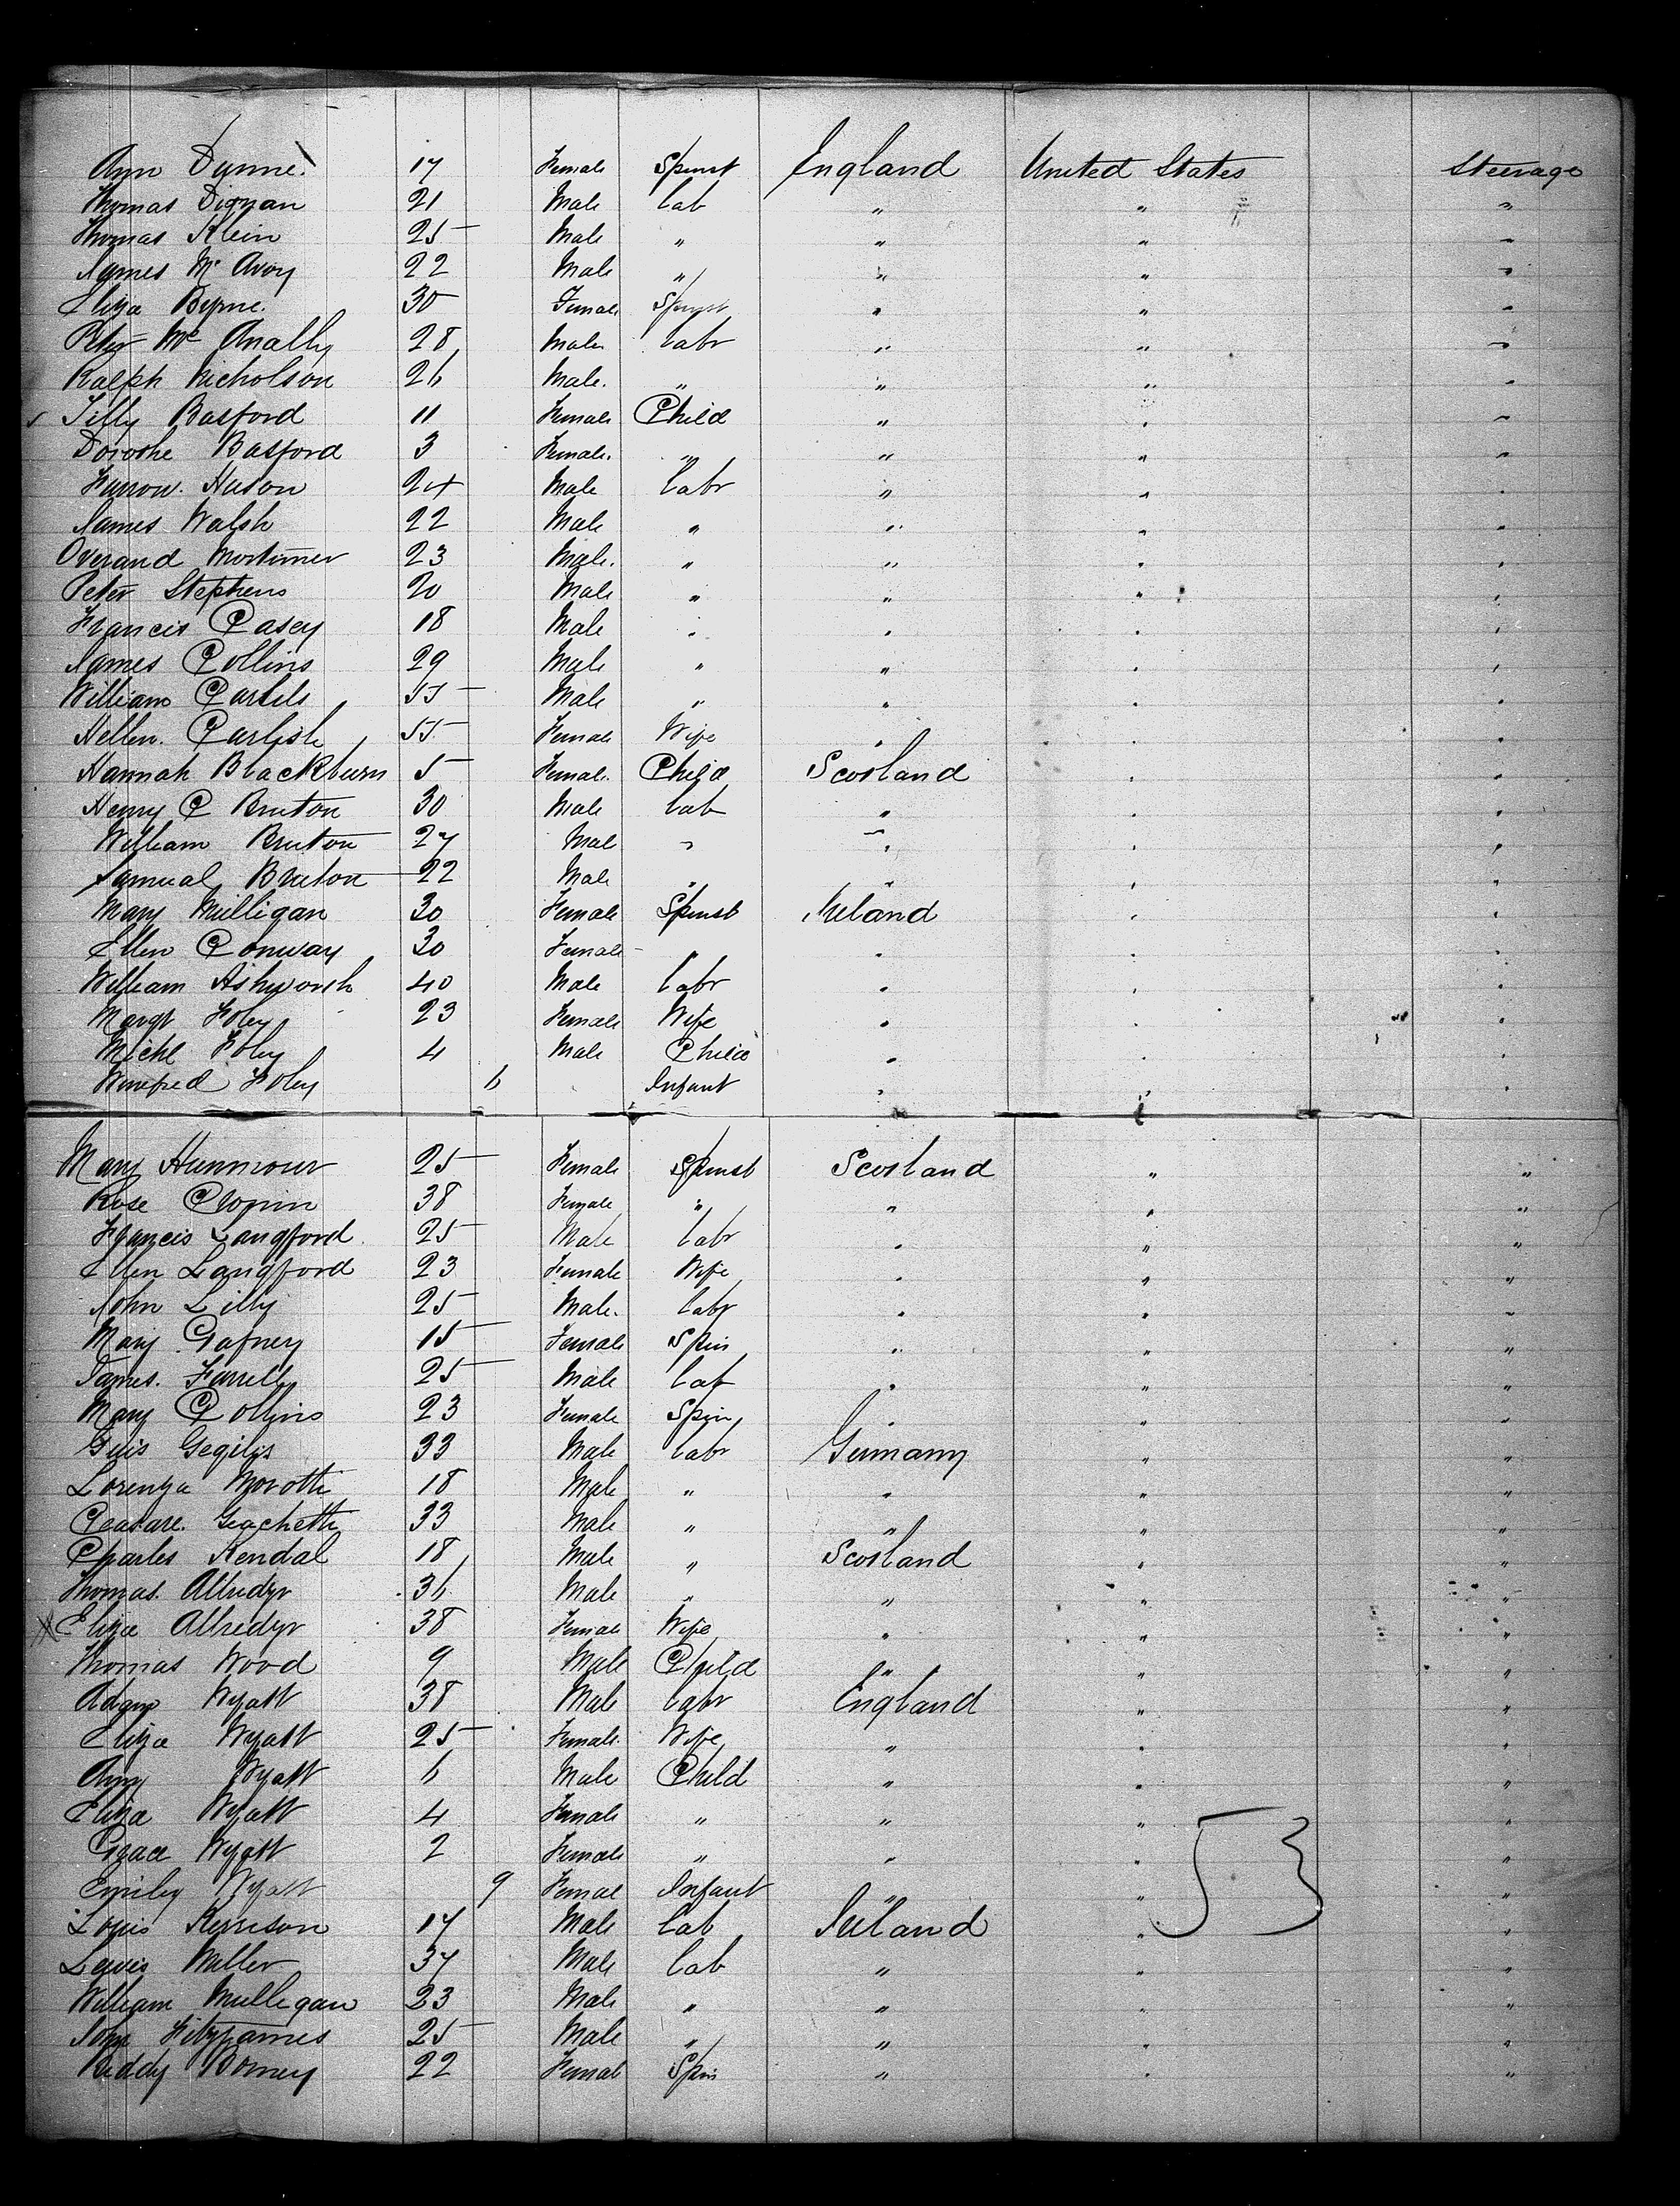 Ann Dunne. 17 Female Spinst England United States Steerage
Thomas Dignan 21 Male Lab " " "
Thomas Klein 25 Male " " " "
James Mc Avoy 22 Male " " " "
Eliza Byrne. 30 Female Spinst " " "
Peter Mc Anally 28 Male Labr " " "
Ralph Nicholson 26 Male. " " " "
Tilly Basford 11 Female Child " " "
Basford 3 Female. " " " "
Huson 24 Male Labr " " "
James Walsh 22 Male " " " "
Overand Mortimer 23 Male. " " " "
Peter Stephens 20 Male " " " "
Francis Casey 18 Male " " " "
James Collins 29 Male " " " "
William Carlile 55 Male " " " "
Hellen. Carlisle 55 Female Wife " " "
Hannah Blackburn 5 Female. Child Scotland " "
Henry C Bruton 30 Male Lab " " "
William Bruton 27 Male " " " "
Samual Bruton 22 Male " " " "
Mary Mulligan 30 Female Spinst Ireland " "
Ellen Conway 30 Female " " " "
William Ashworth 40 Male Labr " " "
Margt Foley 23 Female Wife " " "
Michl Foley 4 Male Child " " "
Winefred Foley 6 Infant " " "
Mary 25 Female Spinst Scotland " "
Rose Cronin 38 Female " " " "
Francis Langford 25 Male Labr " " "
Ellen Langford 23 Female Wife " " "
John Lilly 25 Male. Labr " " "
Mary Gafney 15 Female Spin " " "
James. Farrell 25 Male Lab " " "
Mary Collins 23 Female Spin " " "
33 Male Labr Germany " "
Lorenza Morotti 18 Male " " " "
Ceasare. Giachetti 33 Male " " " "
Charles Kendal 18 Male " Scotland " "
Thomas. 36 Male " " " "
Eliza 38 Female Wife " " "
Thomas Wood 9 Male Child " " "
Adam Wyatt 38 Male Labr England " "
Eliza Wyatt 25 Female. Wife " " "
Amy Wyatt 6 Male Child " " "
Eliza Wyatt 4 Female " " " "
Grace Wyatt 2 Female " " " "
Emiley Wyatt 9 Female Infant " "
53
Louis Kerrison 17 Male Lab Ireland " "
Lewis Miller 37 Male Lab " " "
William Mulligan 23 Male " " " "
John Fitzjames 25 Male " " " "
Biddy 22 Female Spin " " "